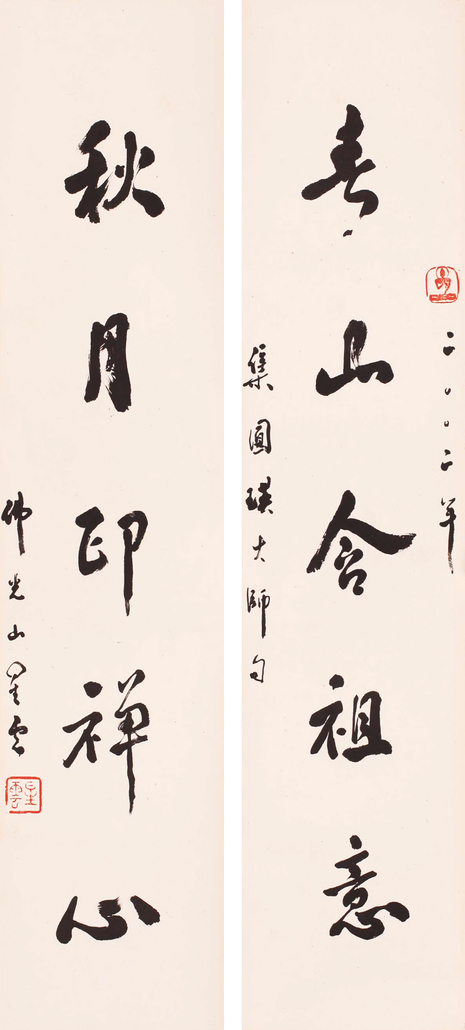 二〇〇二年
春山含祖意
集圓瑛大師句
秋月印禅心
佛光山星雲
星雲